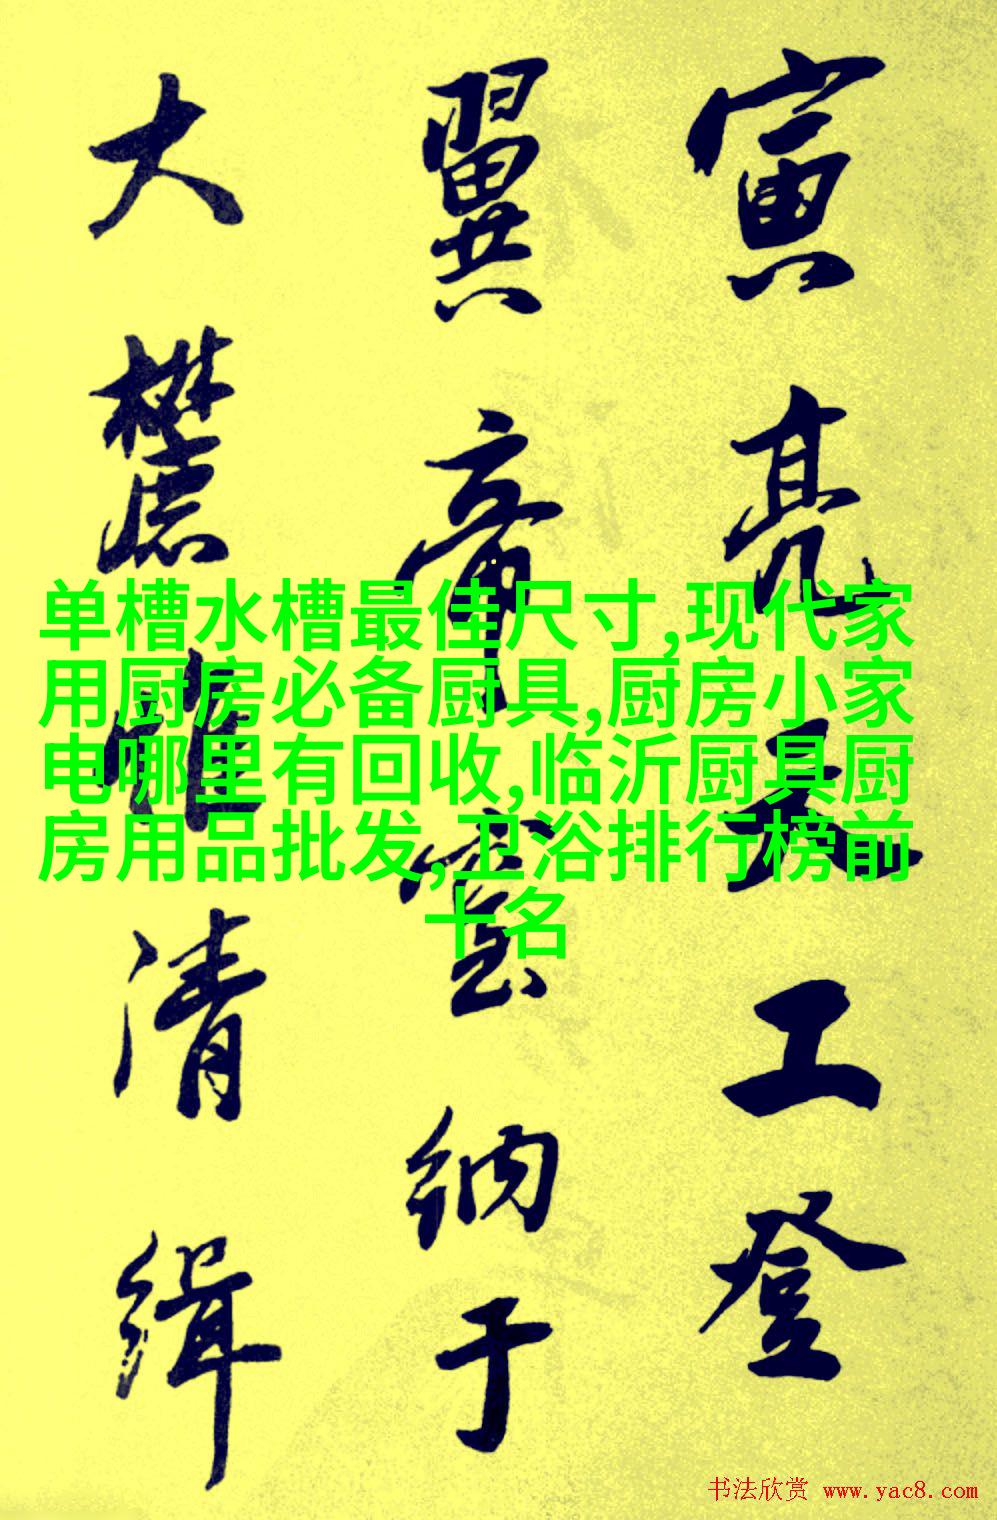 寅亮天工登
翼帝室納于
大麓惟清緝
单槽水槽最佳尺寸,现代家
用厨房必备厨具,厨房小家
电哪里有回收,临沂厨具厨
房用品批发,卫浴排行榜前
十名
书法欣赏 www.yac8.com